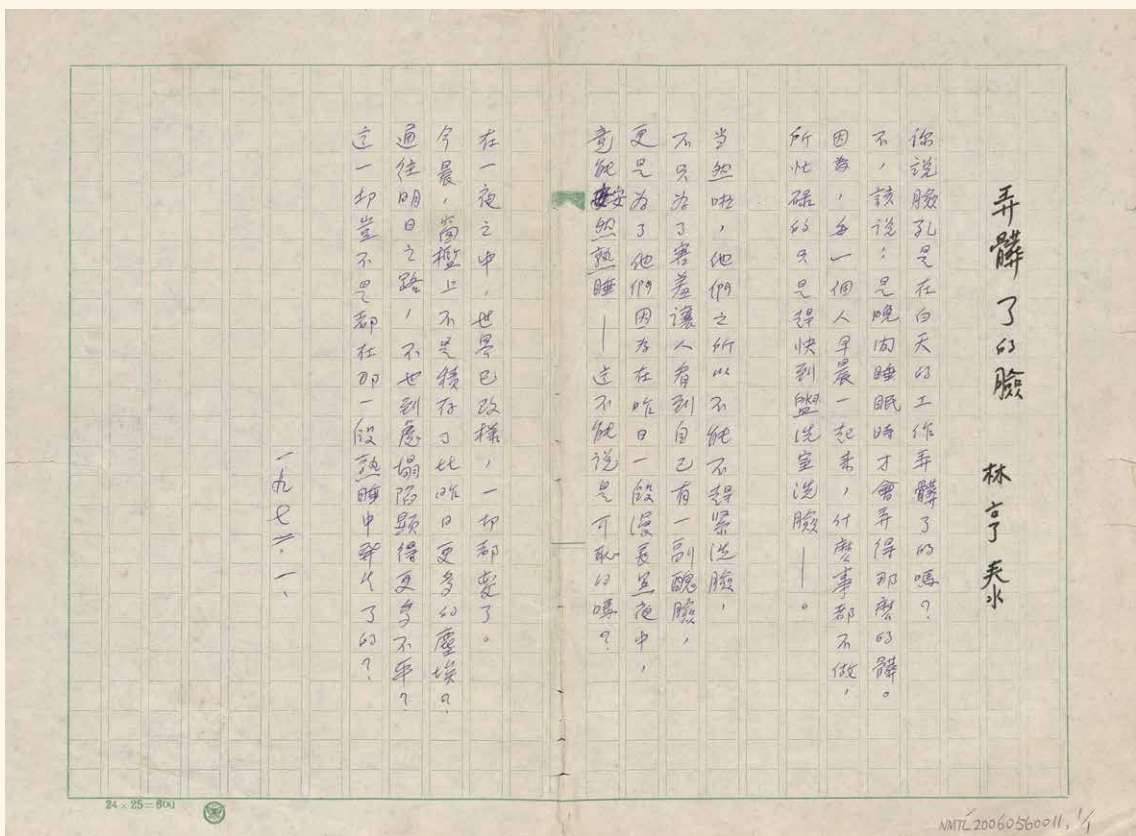 弄髒了的臉　林亨泰
你說臉孔是在白天的工作弄髒了的嗎？
不，該說：是晚间睡眠時才會弄得那麼的髒。
因為，每一個人早晨一起来，什麼事都不做，
所忙碌的只是趕快到盥洗室洗臉——。
当然啦，他們之所以不能不趕紧洗臉，
不只为了害羞讓人看到自己有一副醜臉，
更是为了他們因为在昨日一段漫長黑夜中，
竟能安然熟睡——这不能说是可恥的嗎？
在一夜之中，世界已改樣，一切都变了。
今晨，窗檻上不是積存了比昨日更多的塵埃？
通往明日之路，不也到處塌陷顯得更多不平？
这一切豈不是都在那一段熟睡中發生了的？
一九七二．一．
24×25=600
NMTL20060560011, 1/1